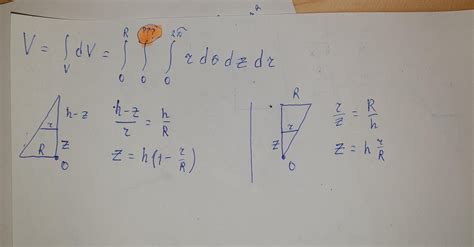 V = ∫_V dV = ∫_0^R ∫_0^{???} ∫_0^{2π} r dθ dz dr
h-z
r
R
z
O
(h-z)/r = h/R
z = h(1 - r/R)
R
r
z
O
r/z = R/h
z = h r/R